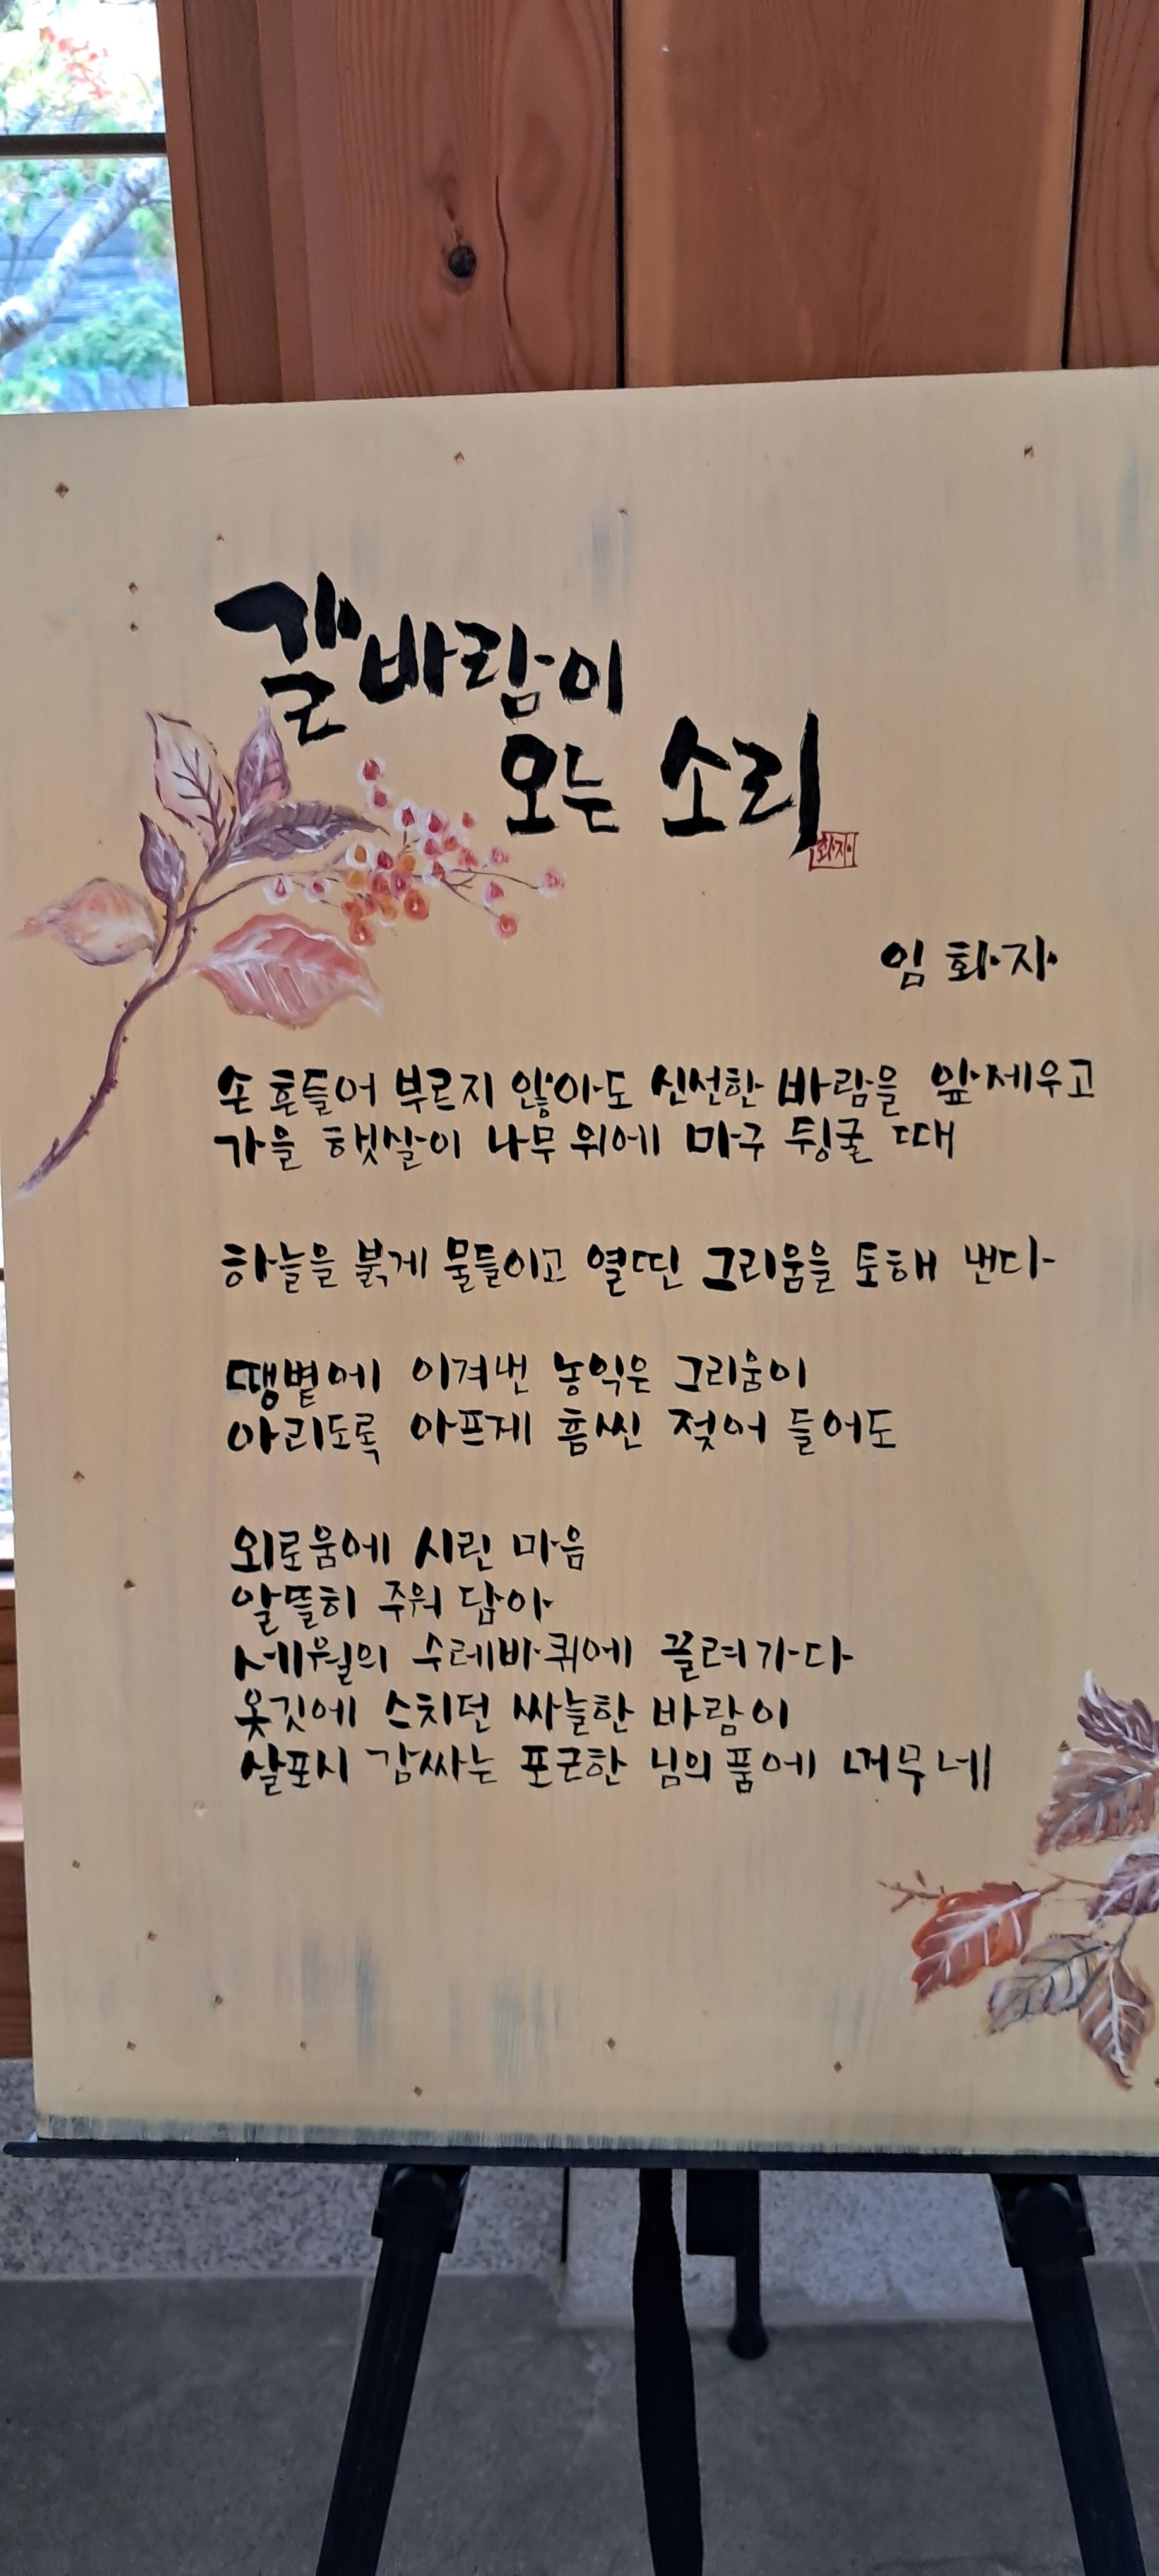 갈바람이
오는 소리
화자
임 화자
손 흔들어 부르지 않아도 신선한 바람을 앞세우고
가을 햇살이 나무 위에 마구 뒹굴 때
하늘을 붉게 물들이고 열띤 그리움을 토해 낸다
땡볕에 이겨낸 농익은 그리움이
아리도록 아프게 흠씬 젖어 들어도
외로움에 시린 마음
알뜰히 주워 담아
세월의 수레바퀴에 끌려가다
옷깃에 스치던 싸늘한 바람이
살포시 감싸는 포근한 님의 품에 머무네